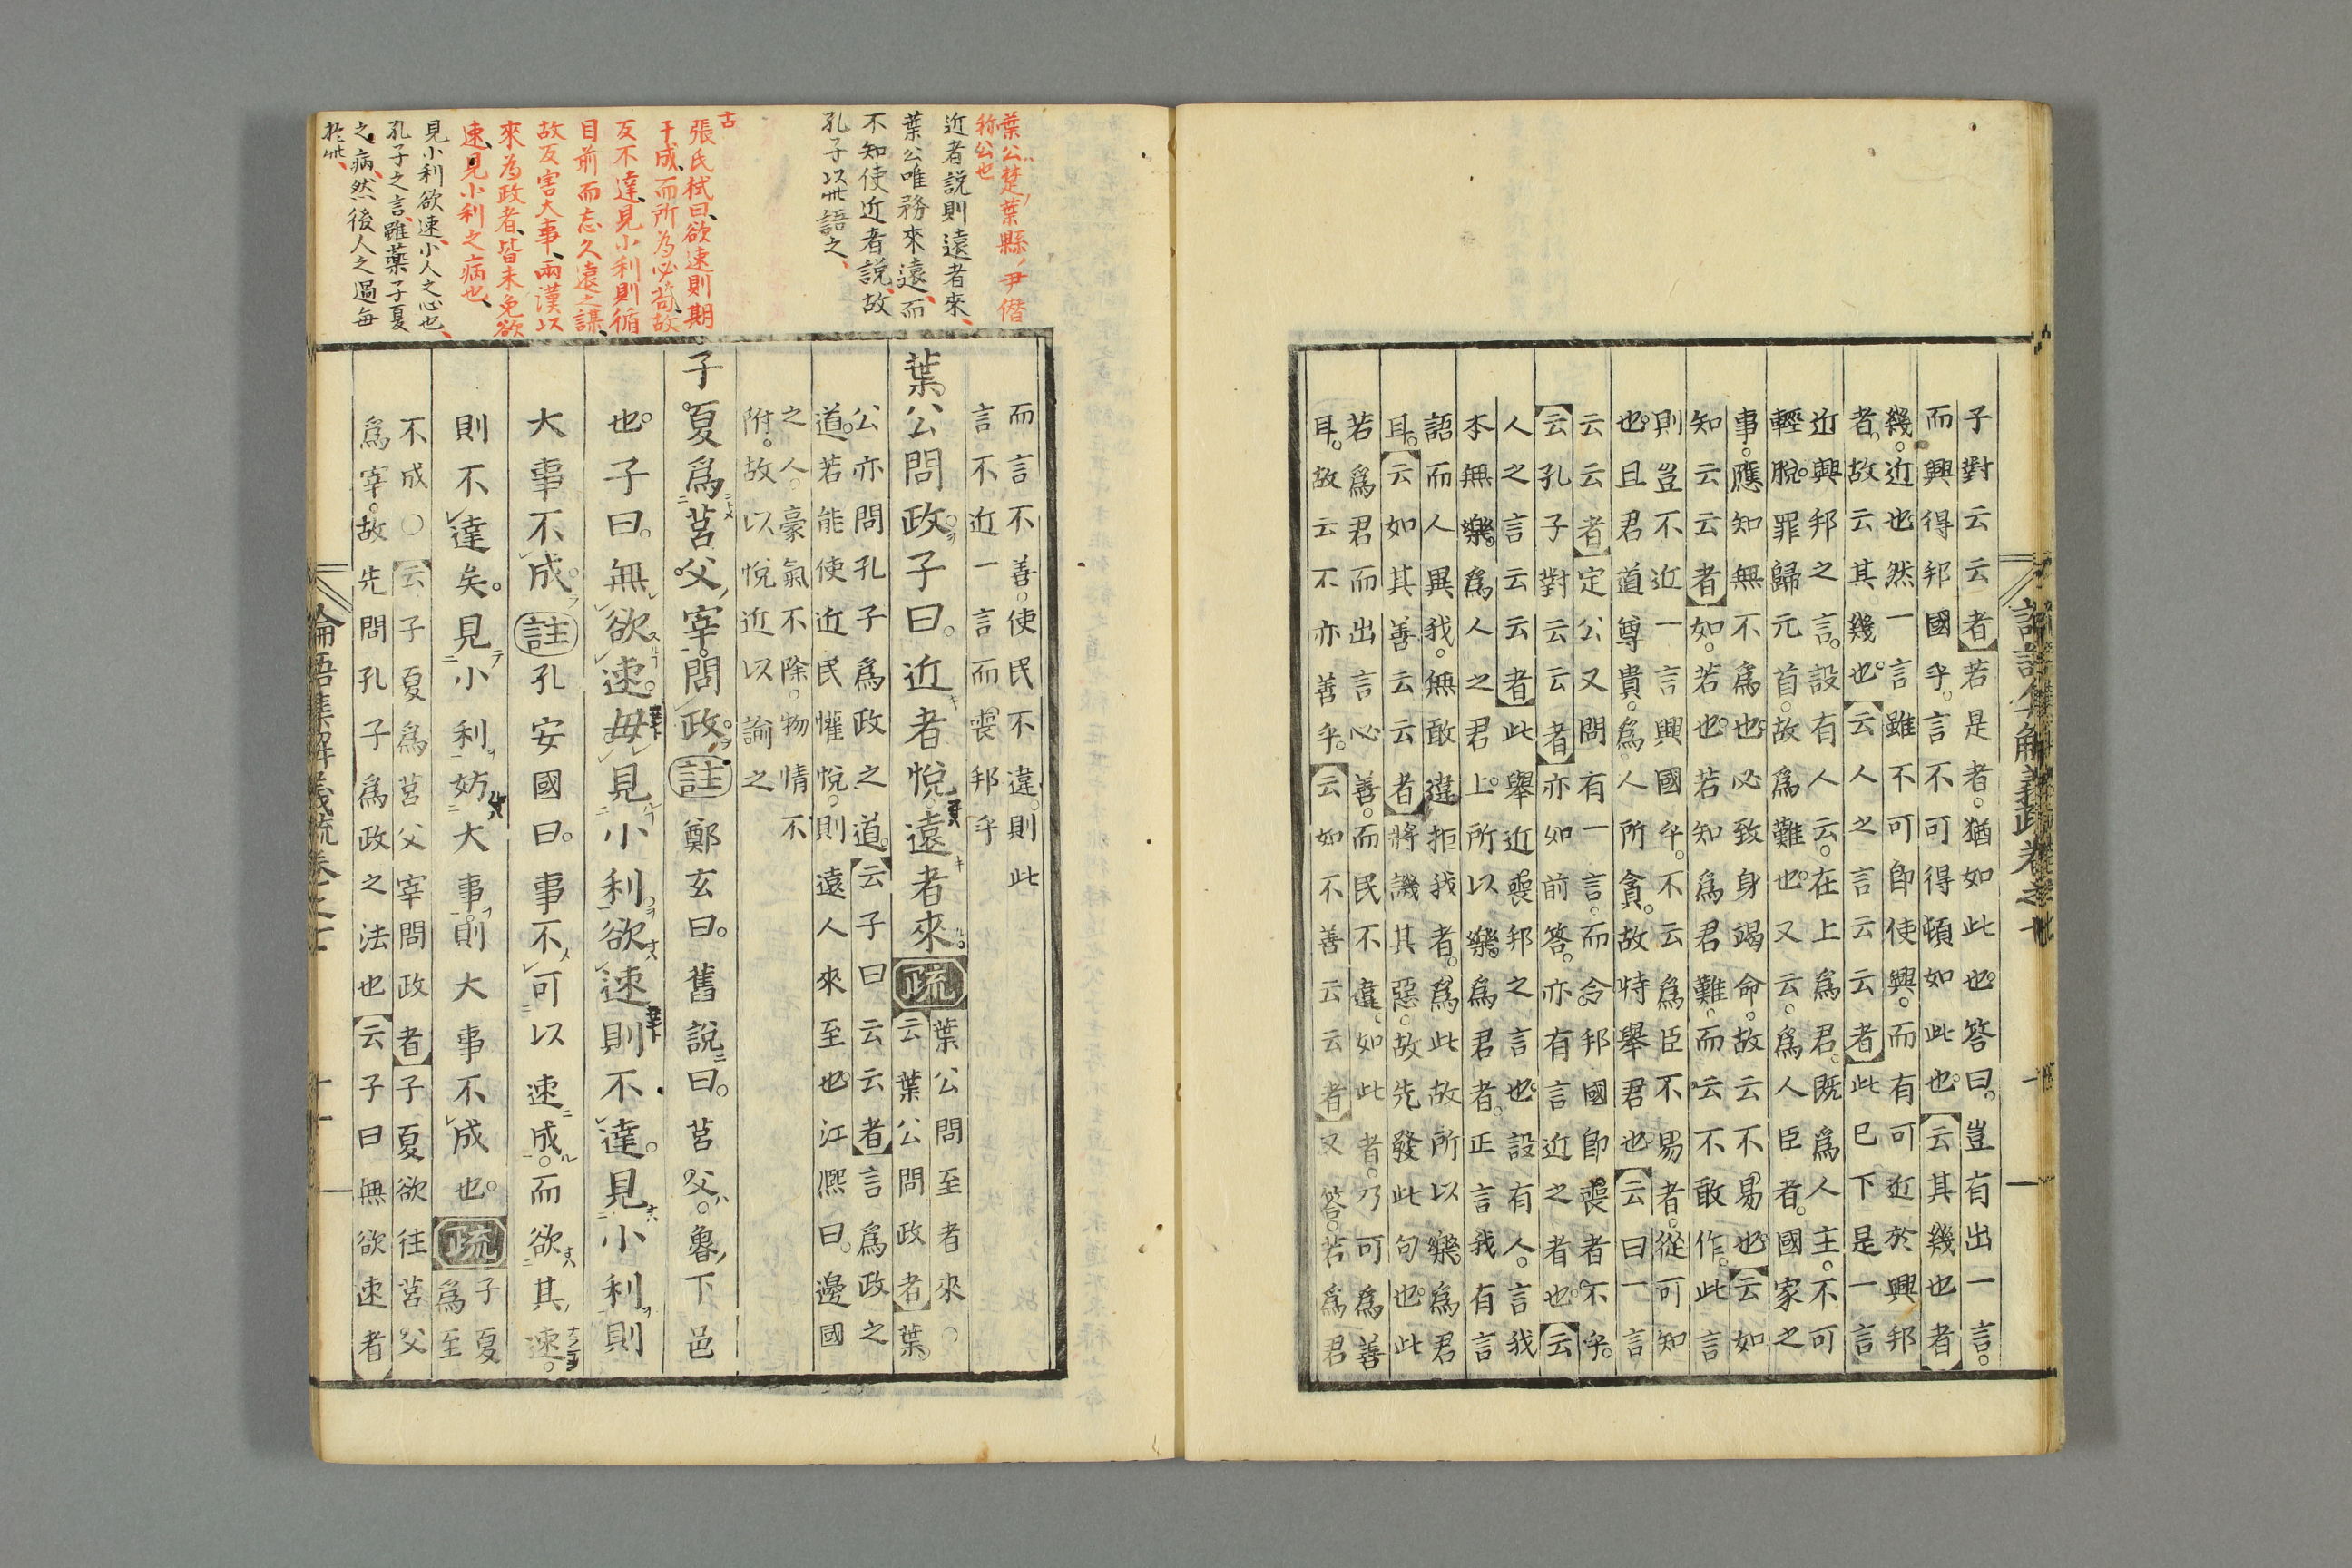 子對云云者若是者猶如此也答曰豈有出一言
而興得邦國乎言不可得頓如此也云其幾也者
幾近也然一言雖不可即使興而有可近於興邦
者故云其幾也云人之言云云者此已下是一言
近興邦之言設有人云在上爲君既爲人主不可
輕脱罪歸元首故爲難也又云爲人臣者國家之
事應知無不爲也必致身竭命故云不易也云如
知云云者如若也若知爲君難而云不敢作此言
則豈不近一言興國乎不云爲臣不易者從可知
也且君道尊貴爲人所貪故特舉君也云曰一言
云云者定公又問有一言而令邦國即喪者不乎
云孔子對云云者亦如前答亦有言近之者也云
人之言云云者此舉近喪邦之言也設有人言我
本無樂爲人之君上所以樂爲君者正言我有言
語而人異我無敢違拒我者爲此故所以樂爲君
耳云如其善云云者將譏其惡故先發此句也此
若爲君而出言心善而民不違如此者乃可爲善
耳故云不亦善乎云如不善云云者又答若爲君
葉公楚葉縣尹僭
称公也
近者説則遠者來
葉公唯務來遠而
不知使近者説故
孔子以此語之
古
張氏栻曰欲速則期
于成而所為必苟故
反不達見小利則循
目前而忘久遠之謀
故反害大事兩漢以
來為政者皆未免欲
速見小利之病也
見小利欲速小人之心也
孔子之言雖藥子夏
之病然後人之過毎
於此
而言不善使民不違則此
言不近一言而喪邦乎
葉公問政子曰近者悦遠者來疏葉公問至者來○
云葉公問政者葉
公亦問孔子爲政之道云子曰云云者言爲政之
道若能使近民懽悦則遠人來至也江熙曰邊國
之人豪氣不除物情不
附故以悦近以諭之
子夏爲莒父宰問政註鄭玄曰舊説曰莒父魯下邑
也子曰無欲速毋見小利欲速則不達見小利則
大事不成註孔安國曰事不可以速成而欲其速
則不達矣見小利妨大事則大事不成也疏子夏
爲至
不成○云子夏爲莒父宰問政者子夏欲往莒父
爲宰故先問孔子爲政之法也云子曰無欲速者
論語集解義疏卷之七
十一